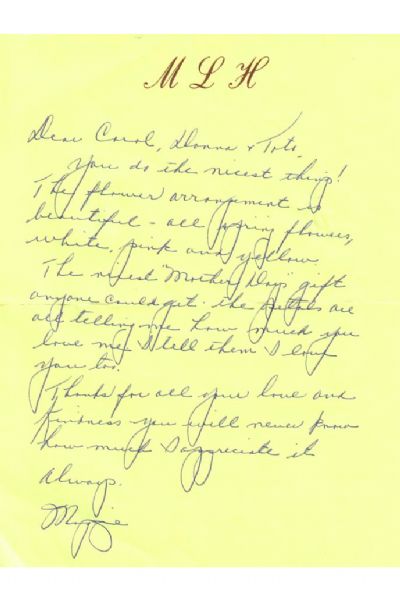 M L H
Dear Carol, Donna & Tots,
you do the nicest things!
The flower arrangement is
beautiful - all spring flowers,
white, pink and yellow.
The nicest "Mother Days" gift
anyone could get - the petals are
all telling me how much you
love me & I tell them I love
you too.
Thanks for all your love and
kindness you will never know
how much I appreciate it
Always.